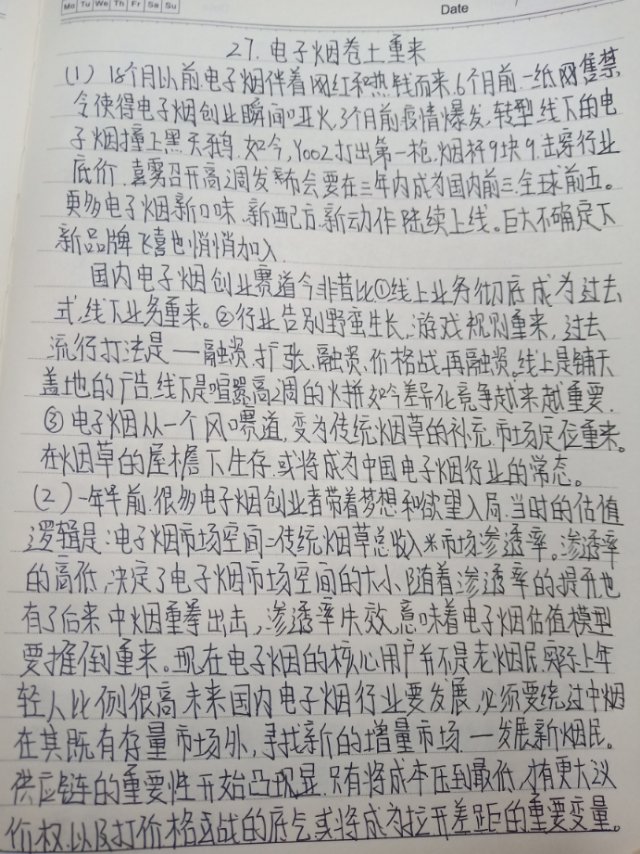 Mo Tu We Th Fr Sa Su
Date
27. 电子烟卷土重来
(1) 18个月以前.电子烟伴着网红和热钱而来.6个月前.一纸网售禁
令使得电子烟创业瞬间哑火,3个月前疫情爆发,转型线下的电
子烟撞上黑天鹅.如今,Yooz打出第一枪.烟杆9块9.击穿行业
底价.喜雾召开高调发布会要在三年内成为国内前三.全球前五。
更多电子烟新口味.新配方.新动作陆续上线。巨大不确定下
新品牌飞喜也悄悄加入.
国内电子烟创业赛道今非昔比①线上业务彻底成为过去
式,线下业务重来。②行业告别野蛮生长,游戏规则重来,过去
流行打法是一融资.扩张.融资.价格战.再融资。线上是铺天
盖地的广告.线下是喧嚣高调的火拼.如今差异化竞争越来越重要.
③电子烟从一个风口赛道,变为传统烟草的补充.市场定位重来。
在火因草的屋檐下生存.或将成为中国电子烟行业的常态。
(2) 一年半前.很多电子烟创业者带着梦想和欲望入局.当时的估值
逻辑是:电子烟市场空间=传统烟草总收入×市场渗透率。渗透率
的高低,决定了电子烟市场空间的大小.随着渗透率的提升也
有了后来中烟重拳出击,渗透率失效,意味着电子烟估值模型
要推倒重来。现在电子烟的核心用户并不是老烟民,实际上年
轻人比例很高.未来国内电子烟行业要发展,必须要绕过中烟
在其既有存量市场外,寻找新的增量市场.一发展新烟民。
供应链的重要性开始凸现显.只有将成本压到最低,才有更大议
价权.以及打价格战的底气或将成为拉开差距的重要变量。